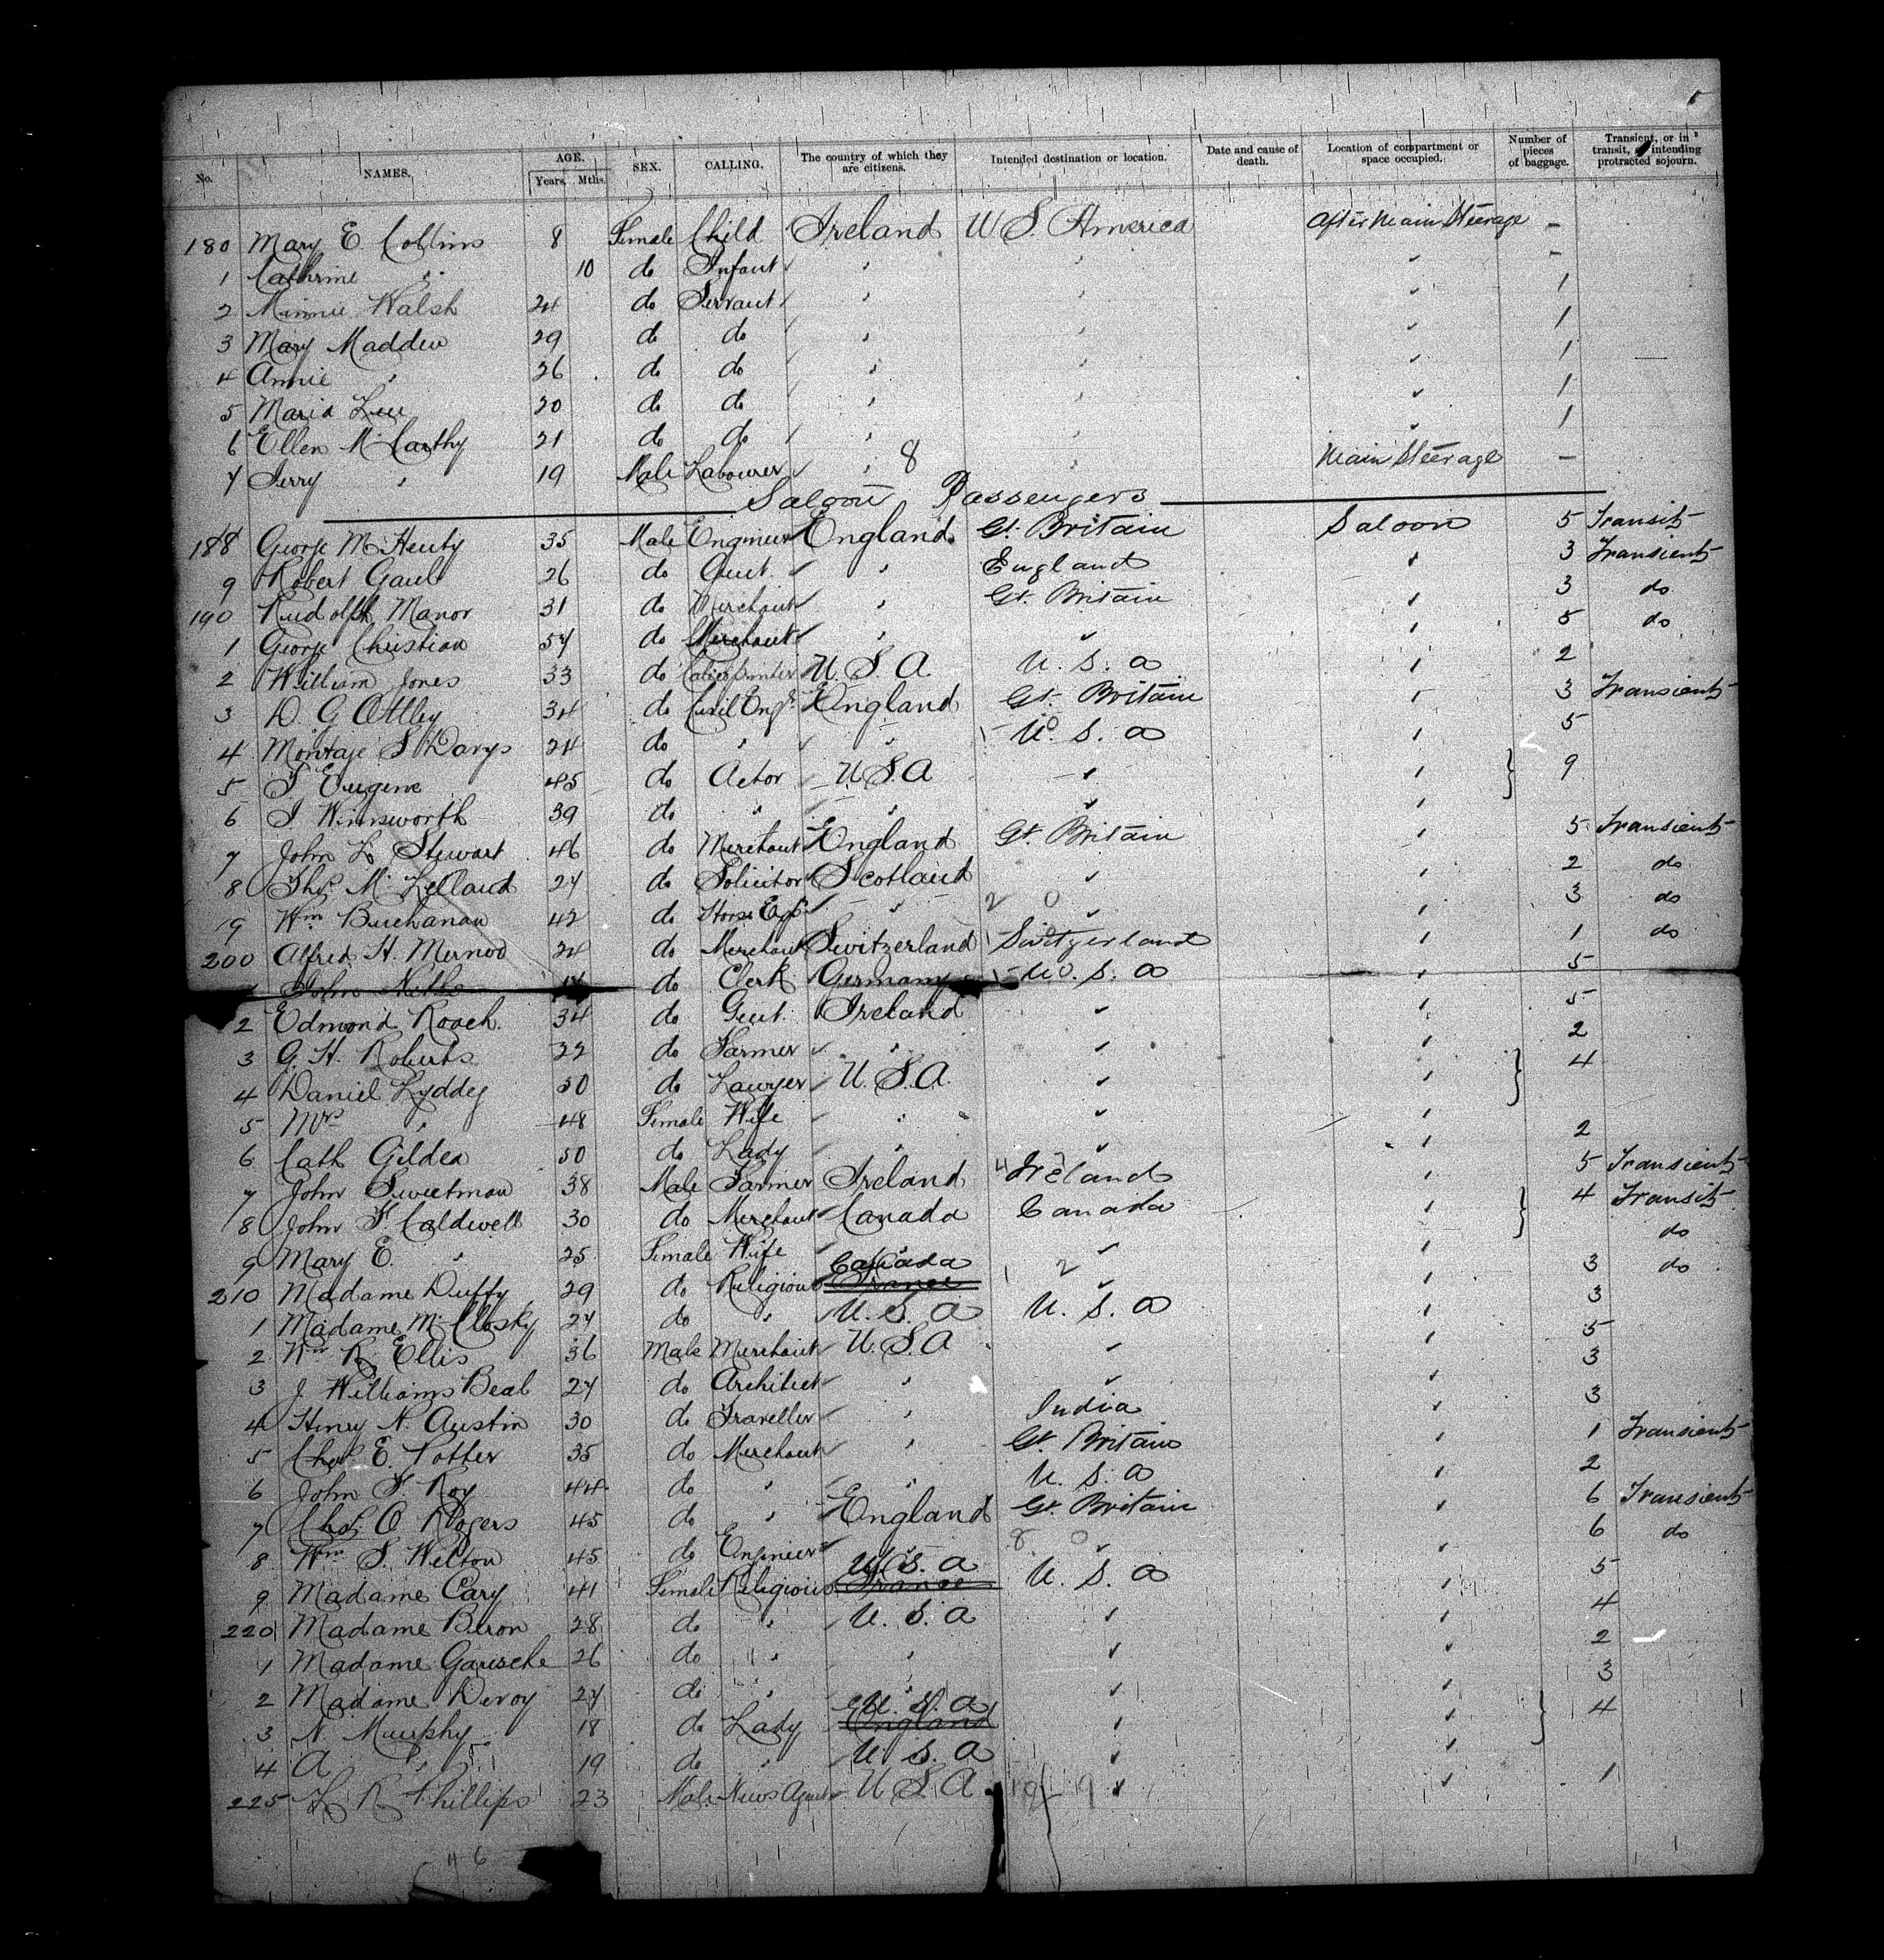 No. NAMES. AGE. Years. Mths. SEX. CALLING. The country of which they are citizens. Intended destination or location. Date and cause of death. Location of compartment or space occupied. Number of pieces of baggage. Transient, or in transit, or intending protracted sojourn.
180 Mary E. Collins 8 Female Child Ireland U S. America After Main Steerage –
1 Cathrine " 10 do Infant " " " –
2 Minnie Walsh 24 do Servant " " " 1
3 Mary Madden 29 do do " " " 1
4 Annie " 26 do do " " " 1
5 Maria Lee 20 do do " " " 1
6 Ellen McCarthy 21 do do " " " 1
7 Jerry " 19 Male Labourer " 8 " Main Steerage –
Saloon Passengers
188 George McHenty 35 Male Engineer England Gt. Britain Saloon 5 Transit
9 Robert Gaul 26 do Gent. " England " 3 Transient
190 Rudolph Manor 31 do Merchant " Gt. Britain " 3 do
1 George Christian 54 do Merchant " " " 5 do
2 William Jones 33 do U.S.A U.S.a " 2
3 D. G Ottley 34 do Civil Engr. England Gt. Britain " 3 Transient
4 Montaje S Davys 24 do " " U.S.a " 5
5 T Eugene 45 do Actor U.S.A " " 9
6 J. Winsworth 39 do " " " "
7 John L. Stewart 46 do Merchant England Gt. Britain " 5 Transient
8 Thos. McLelland 27 do Solicitor Scotland " " 2 do
19 Wm. Buchanan 42 do " " " 3 do
200 Alfred H. Mernod 24 do Merchant Switzerland Switzerland " 1 do
John do Clerk Germany U.S.a " 5
2 Edmond Roach. 34 do Gent. Ireland " " 5
3 G. H. Roberts 22 do Farmer " " " 2
4 Daniel Lyddy 50 do Lawyer U.S.A. " " 4
5 Mrs " 48 Female Wife " " "
6 Cath Gildea 50 do Lady " " " 2
7 John Sweetman 38 Male Farmer Ireland Ireland " 5 Transient
8 John T. Caldwell 30 do Merchant Canada Canada " 4 Transit
9 Mary E. " 25 Female Wife " " " do
210 Madame Duffy 29 do Religious Canada France " " 3 do
1 Madame McClosky 27 do " U.S.a U.S.a " 3
2 Wm R. Ellis 36 Male Merchant U.S.A " " 5
3 J Williams Beal 27 do Architect " " " 3
4 Henry N. Austin 30 do Traveller " India " 3
5 Chas. E. Potter 35 do Merchant " Gt. Britain " 1 Transient
6 John T. Roy 44 do " " U.S.a " 2
7 Chas. O Rogers 45 do " England Gt. Britain " 6 Transient
8 Wm. S. Welton 45 do Engineer " " " 6 do
9 Madame Cary 41 Female Religious U.S.a France U.S.a " 5
220 Madame Biron 28 do " U.S.a " " 4
1 Madame Garesche 26 do " " " " 2
2 Madame Devoy 27 do " " " " 3
3 N. Murphy 18 do Lady U.S.a England " " 4
4 A " 19 do " U.S.a " "
225 L R Phillips 23 Male News Agent U S A " " 1